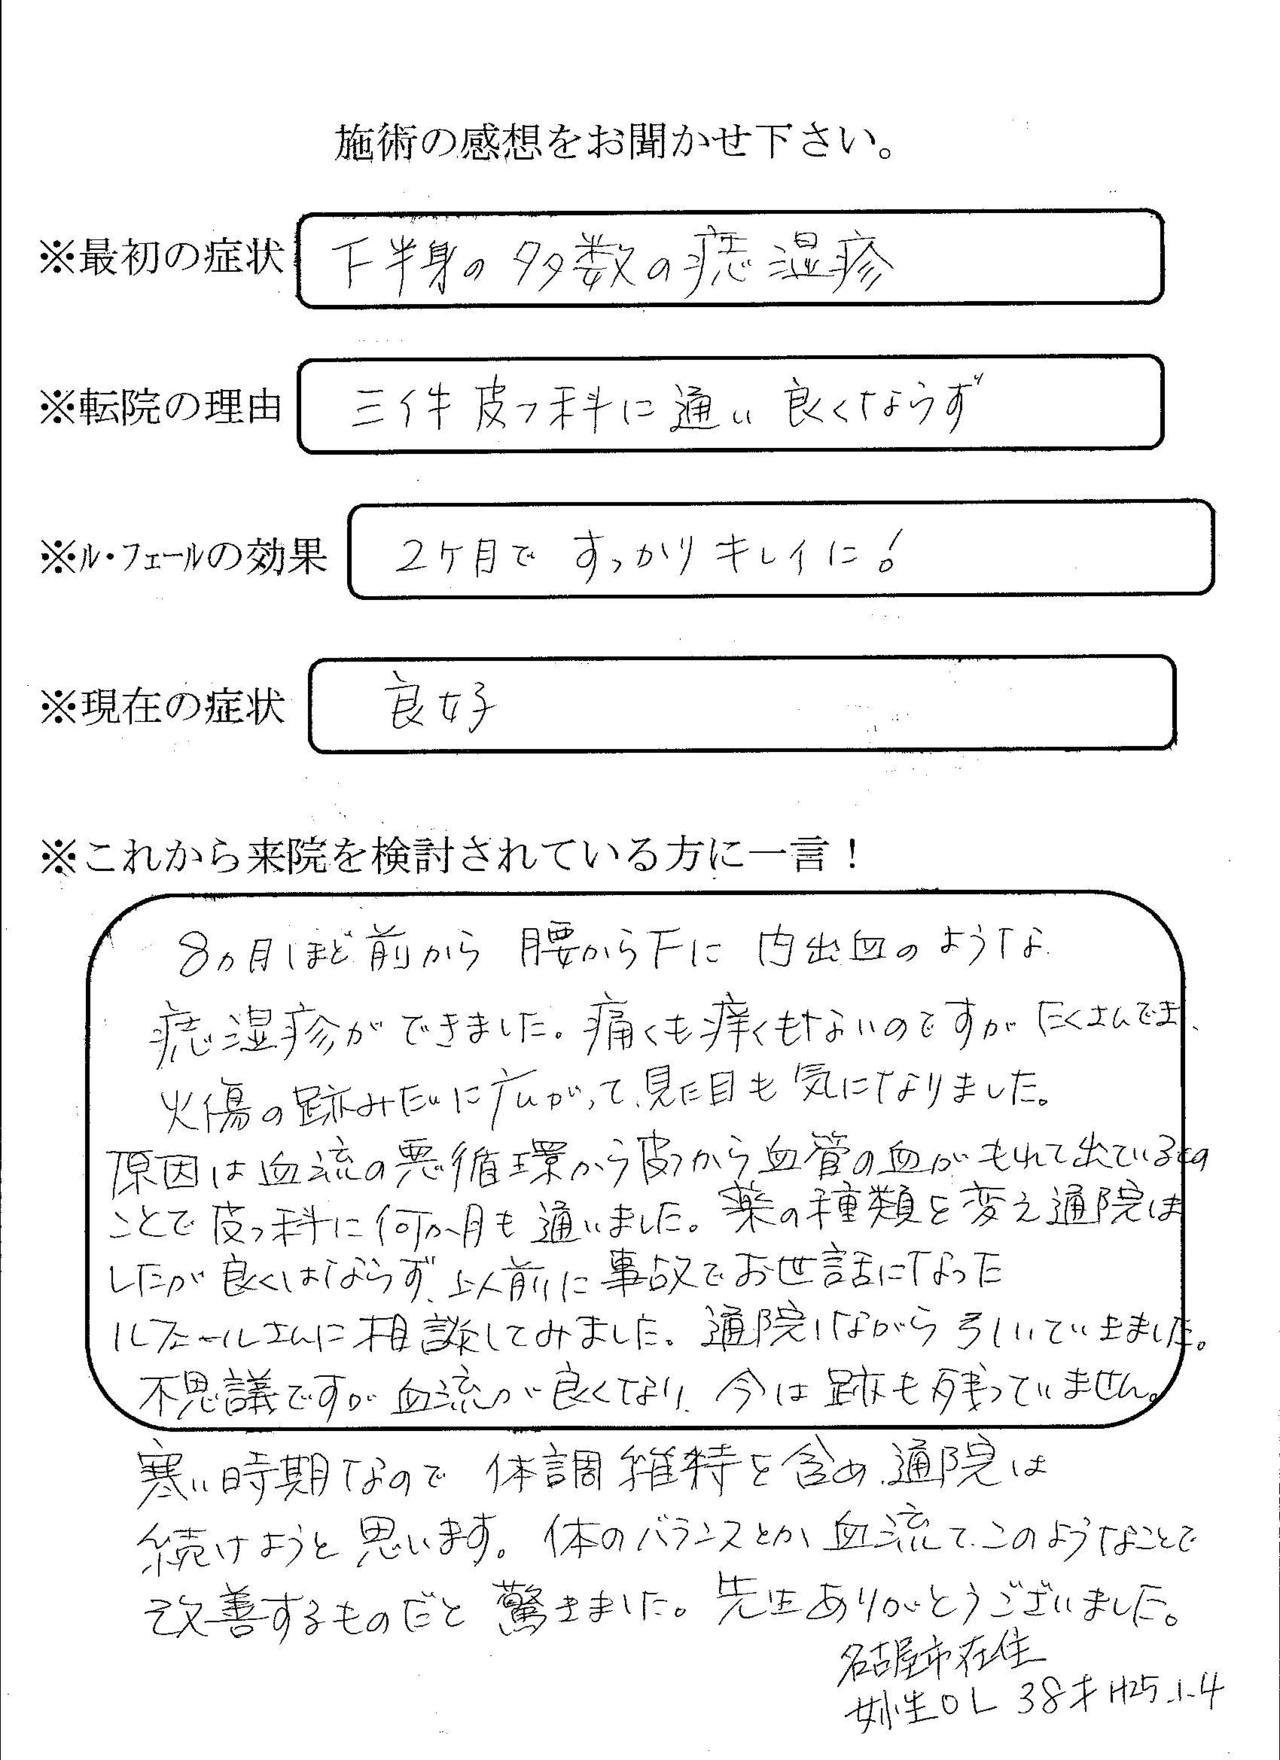 施術の感想をお聞かせ下さい。
※最初の症状 下半身の多数の痣湿疹
※転院の理由 三件皮フ科に通い良くならず
※ル・フェールの効果 2ヶ月ですっかりキレイに!
※現在の症状 良好
※これから来院を検討されている方に一言!
8ヵ月ほど前から 腰から下に 内出血のような
痣湿疹ができました。痛くも痒くもないのですが たくさんでき、
火傷の跡みたいに広がって、見た目も気になりました。
原因は血流の悪循環から皮フから血管の血がもれて出ているとの
ことで皮フ科に何か月も通いました。薬の種類を変え通院は
したが良くはならず、以前に事故でお世話になった
ルフェールさんに相談してみました。通院しながら引いていきました。
不思議ですが血流が良くなり、今は跡も残っていません。
寒い時期なので 体調維持を含め、通院は
続けようと思います。体のバランスとか血流て、このようなことで
改善するものだと驚きました。先生ありがとうございました。
名古屋市在住
OL 38才 H25.1.4